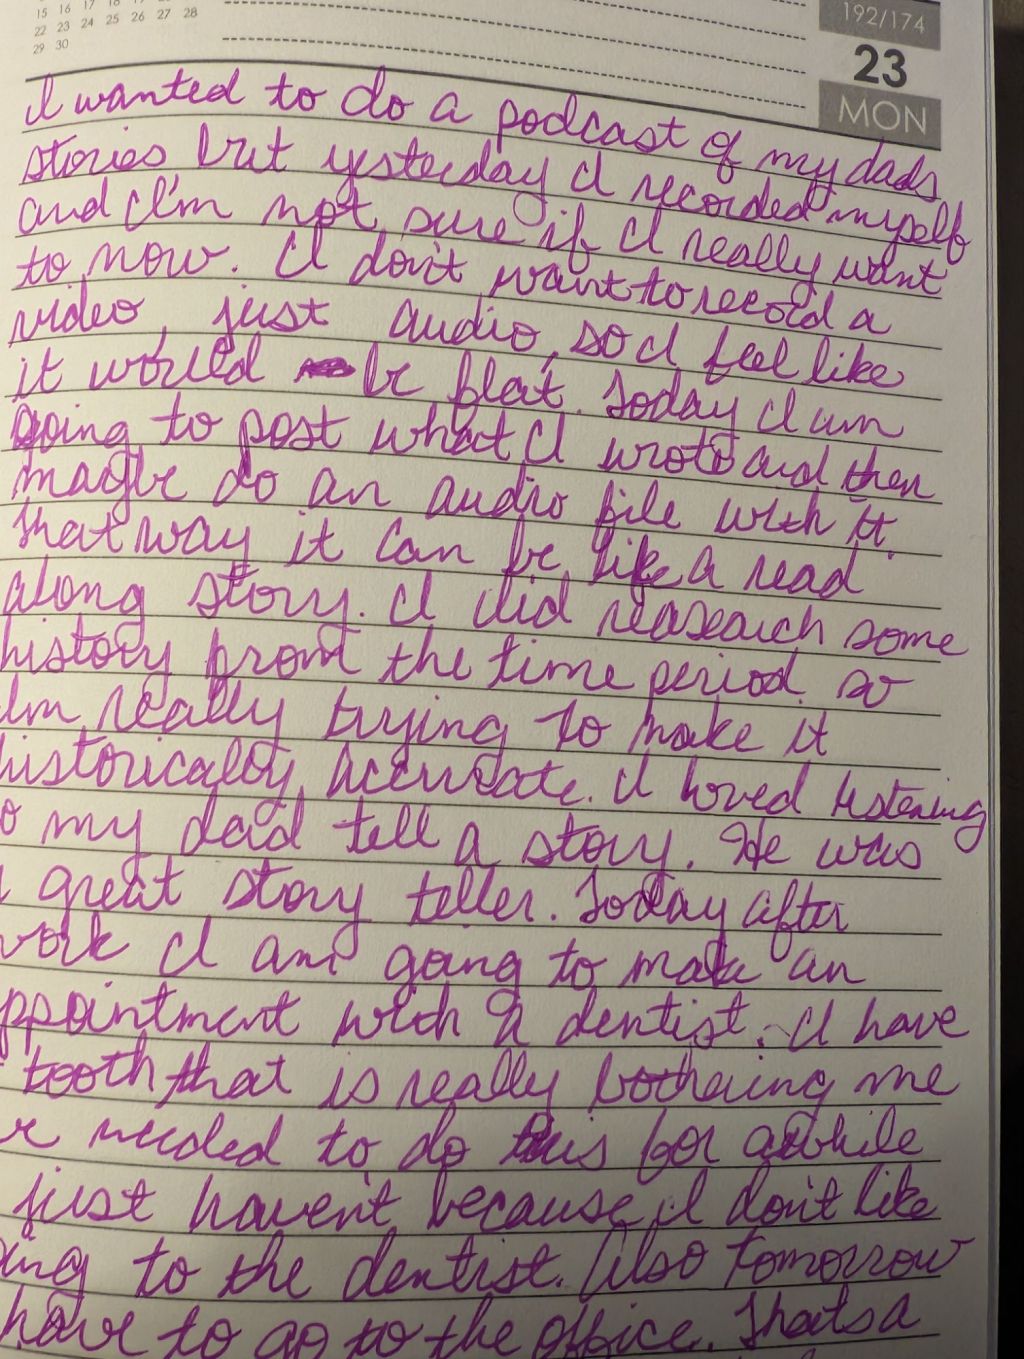 15 16 17 18 19 20 21
22 23 24 25 26 27 28
29 30
192/174
23
MON
I wanted to do a podcast of my dads
stories but yesterday I recorded myself
and I'm not sure if I really want
to now. I don't want to record a
video, just audio, so I feel like
it would be flat. Today I am
going to post what I wrote and then
maybe do an audio file with it.
That way it can be like a read
along story. I did reasearch some
history from the time period so
I'm really trying to make it
historically accurate. I loved listening
o my dad tell a story. He was
great story teller. Today after
work I am going to make an
ppointment with a dentist. I have
tooth that is really bothering me
e needed to do this for awhile
just haven't because I don't like
oing to the dentist. Also tomorrow
have to go to the office. Thats a